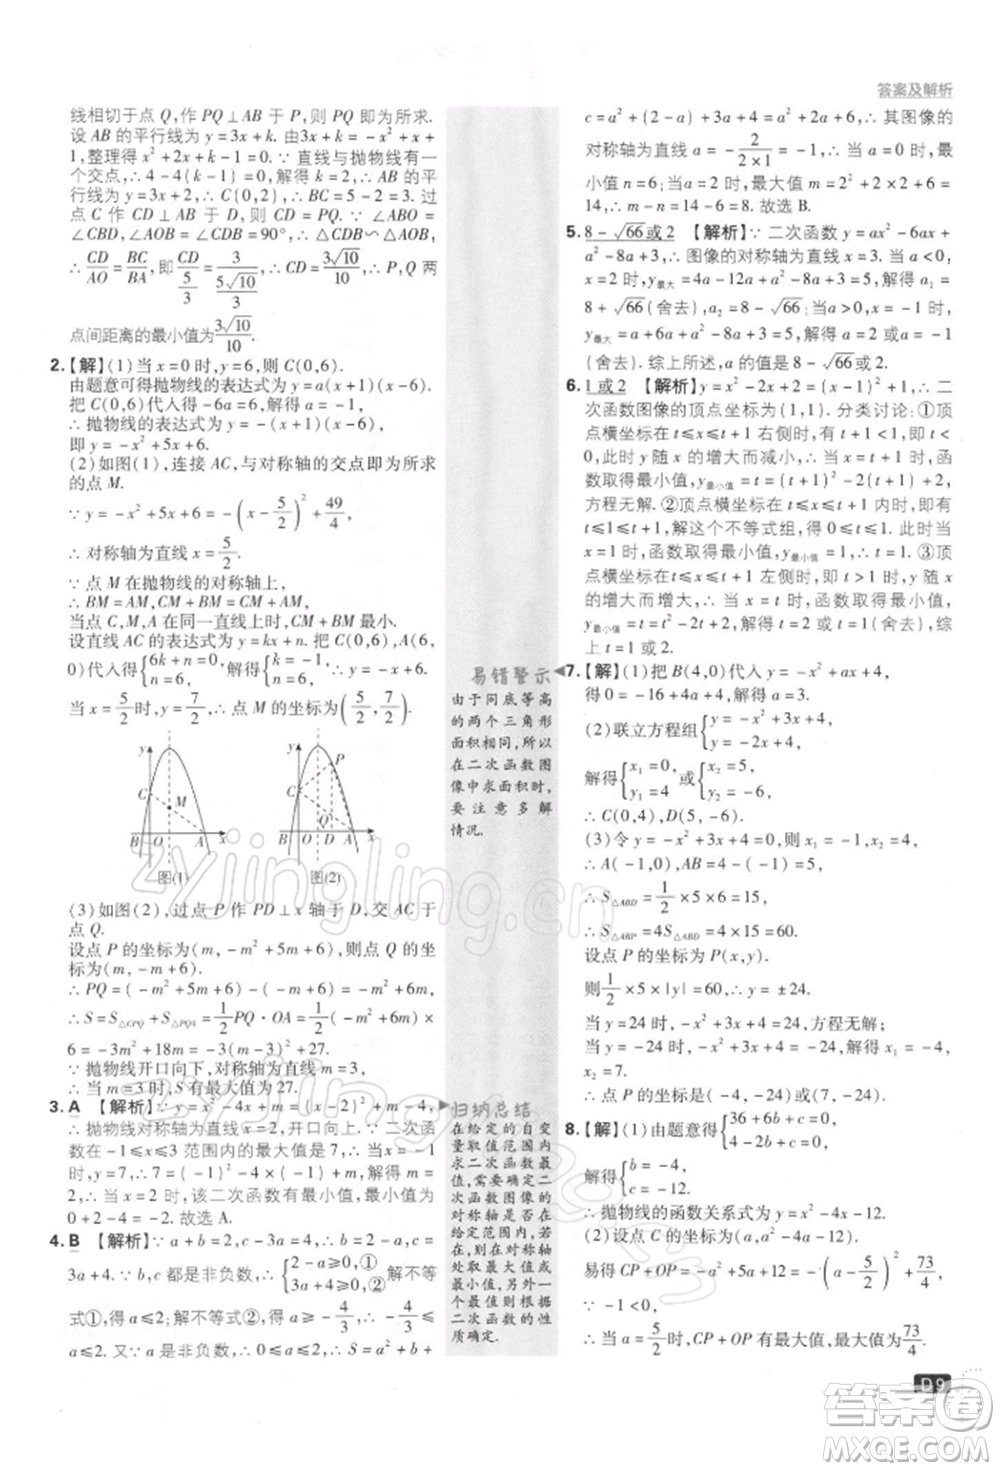 答案及解析
线相切于点 Q,作 PQ⊥AB 于 P,则 PQ 即为所求.
设 AB 的平行线为 y=3x+k. 由题意,3x+k=-x²+x+
1,整理得 x²+2x+k-1=0. ∵ 直线与抛物线只有一
个交点,∴ 4-4(k-1)=0,解得 k=2. ∴ AB 的平
行线为 y=3x+2,∴ C(0,2),∴ BC=5-2=3. 过
点 C 作 CD⊥AB 于 D,则 CD=PQ. ∵ ∠ABO=
∠CBD,∠AOB=∠CDB=90°,∴ △CDB∽△AOB.
∴ CD/AO=BC/BA,即 CD/(5/3)=3/(5√10/3),∴ CD=3√10/10,∴ P,Q 两
点间距离的最小值为3√10/10.
2.【解】(1)当 x=0时,y=6,则 C(0,6).
由题意可得抛物线的表达式为 y=a(x+1)(x-6).
把 C(0,6)代入得-6a=6,解得 a=-1.
∴ 抛物线的表达式为 y=-(x+1)(x-6),
即 y=-x²+5x+6.
(2)如图(1),连接 AC,与对称轴的交点即为所求
的点 M.
∵ y=-x²+5x+6=-(x-5/2)²+49/4,
∴ 对称轴为直线 x=5/2.
∵ 点 M 在抛物线的对称轴上,
∴ BM=AM,CM+BM=CM+AM.
当点 C,M,A 在同一直线上时,CM+BM 最小.
设直线 AC 的表达式为 y=kx+n. 把 C(0,6),A(6,
0)代入得{6k+n=0, n=6, 解得{k=-1, n=6, ∴ y=-x+6,
当 x=5/2时,y=7/2,∴ 点 M 的坐标为(5/2,7/2).
y C M B O A x
图(1)
y P C Q B O D A x
图(2)
(3)如图(2),过点 P 作 PD⊥x 轴于点 D,交 AC 于
点 Q.
设点 P 的坐标为(m,-m²+5m+6),则点 Q 的坐
标为(m,-m+6).
∴ PQ=(-m²+5m+6)-(-m+6)=-m²+6m,
∴ S=S△CPQ+S△PQA=1/2PQ·OA=1/2(-m²+6m)×
6=-3m²+18m=-3(m-3)²+27.
∵ 抛物线开口向下,对称轴为直线 m=3,
∴ 当 m=3时,S 有最大值为 27.
3. A 【解析】∵ y=x²-4x+n=(x-2)²+n-4,
∴ 抛物线对称轴为直线 x=2,开口向上. ∵ 二次函
数在-1≤x≤3 范围内的最大值是 7,∴ 当 x=-1
时,y=7,∴ 当 x=2 时,该二次函数有最小值,最小值为
4-8+2=-2. 故选 A.
4. B 【解析】∵ a+b=2,c-3a=4,∴ b=2-a,c=
3a+4. ∵ b,c 都是非负数,∴ {2-a≥0,① 3a+4≥0,② 解不等
式①,得 a≤2;解不等式②,得 a≥-4/3,∴ -4/3≤
a≤2. 又∵ a 是非负数,∴ 0≤a≤2. ∵ m=a²+b+
易错警示
由于同底等高
的两个三角形
面积相同,所以
在二次函数图
像中求面积时,
要注意多解
情况.
归纳总结
在给定的自变
量取值范围内
求二次函数最
值,需要确定二
次函数图像的
对称轴是否在
给定范围内,若
在,则在对称轴
处取最大值或
最小值,另外一
个最值则根据
二次函数的性
质确定.
c=a²+(2-a)+3a+4=a²+2a+6,∴ 其图像的
对称轴为直线 a=-2/(2×1)=-1,∴ 当 a=0时,最
小值 n=6;当 a=2时,最大值 m=2²+2×2+6=
14,∴ m-n=14-6=8. 故选 B.
5. 8-√66或2 【解析】∵ 二次函数 y=ax²-6ax+
a²-8a+3,∴ 图像的对称轴为直线 x=3. 当 a<0,
x=3时,y最大=9a-18a+a²-8a+3=5,解得 a₁=
8+√66(舍去),a₂=8-√66;当 a>0,x=-1时,
y最大=a+6a+a²-8a+3=5,解得 a=2或 a=-1
(舍去). 综上所述,a 的值是 8-√66或2.
6. 1或2 【解析】y=x²-2x+2=(x-1)²+1,∴ 二
次函数图像的顶点坐标为(1,1). 分类讨论:①顶
点横坐标在 t≤x≤t+1 右侧时,有 t+1<1,即 t<0,
此时 y 随 x 的增大而减小,∴ 当 x=t+1时,函
数取得最小值,y最小值=t=(t+1-1)²+1,
方程无解. ②顶点横坐标在 t≤x≤t+1 内时,有
t≤1≤t+1,解这个不等式组,得 0≤t≤1. 此时当
x=1时,函数取得最小值,y最小值=1,∴ t=1. ③顶
点横坐标在 t≤x≤t+1 左侧时,即 t>1 时,y 随 x
的增大而增大,∴ 当 x=t时,函数取得最小值,
y最小值=t=t²-2t+2,解得 t=2或1(舍去). 综
上,t=1或2.
7.【解】(1)把 B(4,0)代入 y=-x²+ax+4,
得 0=-16+4a+4,解得 a=3.
(2)联立方程组{y=-x²+3x+4, y=-2x+4,
解得{x₁=0, y₁=4 或{x₂=5, y₂=-6,
∴ C(0,4),D(5,-6).
(3)令 y=-x²+3x+4=0,则 x₁=-1,x₂=4,
∴ A(-1,0),AB=5,
∴ S△ABD=1/2×5×6=15,
∴ S△ABP=4S△ABD=60.
设点 P 的坐标为 P(x,y).
则1/2×5×|y|=60,解得 y=±24.
当 y=24 时,-x²+3x+4=24,方程无解;
当 y=-24 时,-x²+3x+4=-24,解得 x₁=-4,
x₂=7.
∴ 点 P 的坐标为(-4,-24)或(7,-24).
8.【解】(1)由题意得{36+6b+c=0, 4-2b+c=0,
解得{b=-4, c=-12,
∴ 抛物线的函数关系式为 y=x²-4x-12.
(2)设点 C 的坐标为(a,a²-4a-12).
易得 CP+OP=-a²+5a+12=-(a-5/2)²+73/4.
∵ -1<0,
∴ 当 a=5/2时,CP+OP 有最大值,最大值为73/4.
D9
zyjingling.cn
答案圈
MXQE.COM